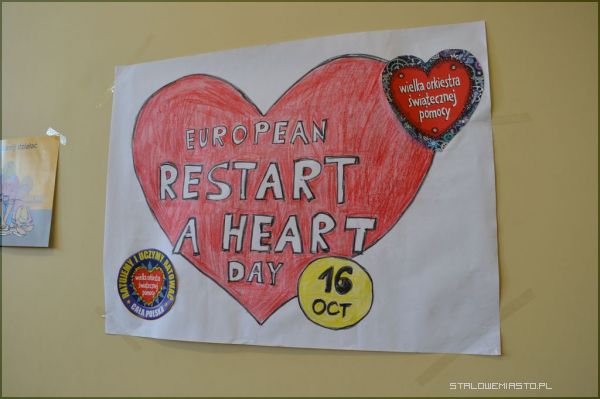 EUROPEAN
RESTART
A HEART
DAY
16
OCT
wielka orkiestra
świątecznej
pomocy
RATUJEMY I UCZYMY RATOWAĆ
wielka orkiestra
świątecznej
pomocy
CAŁA POLSKA
STALOWEMIASTO.PL